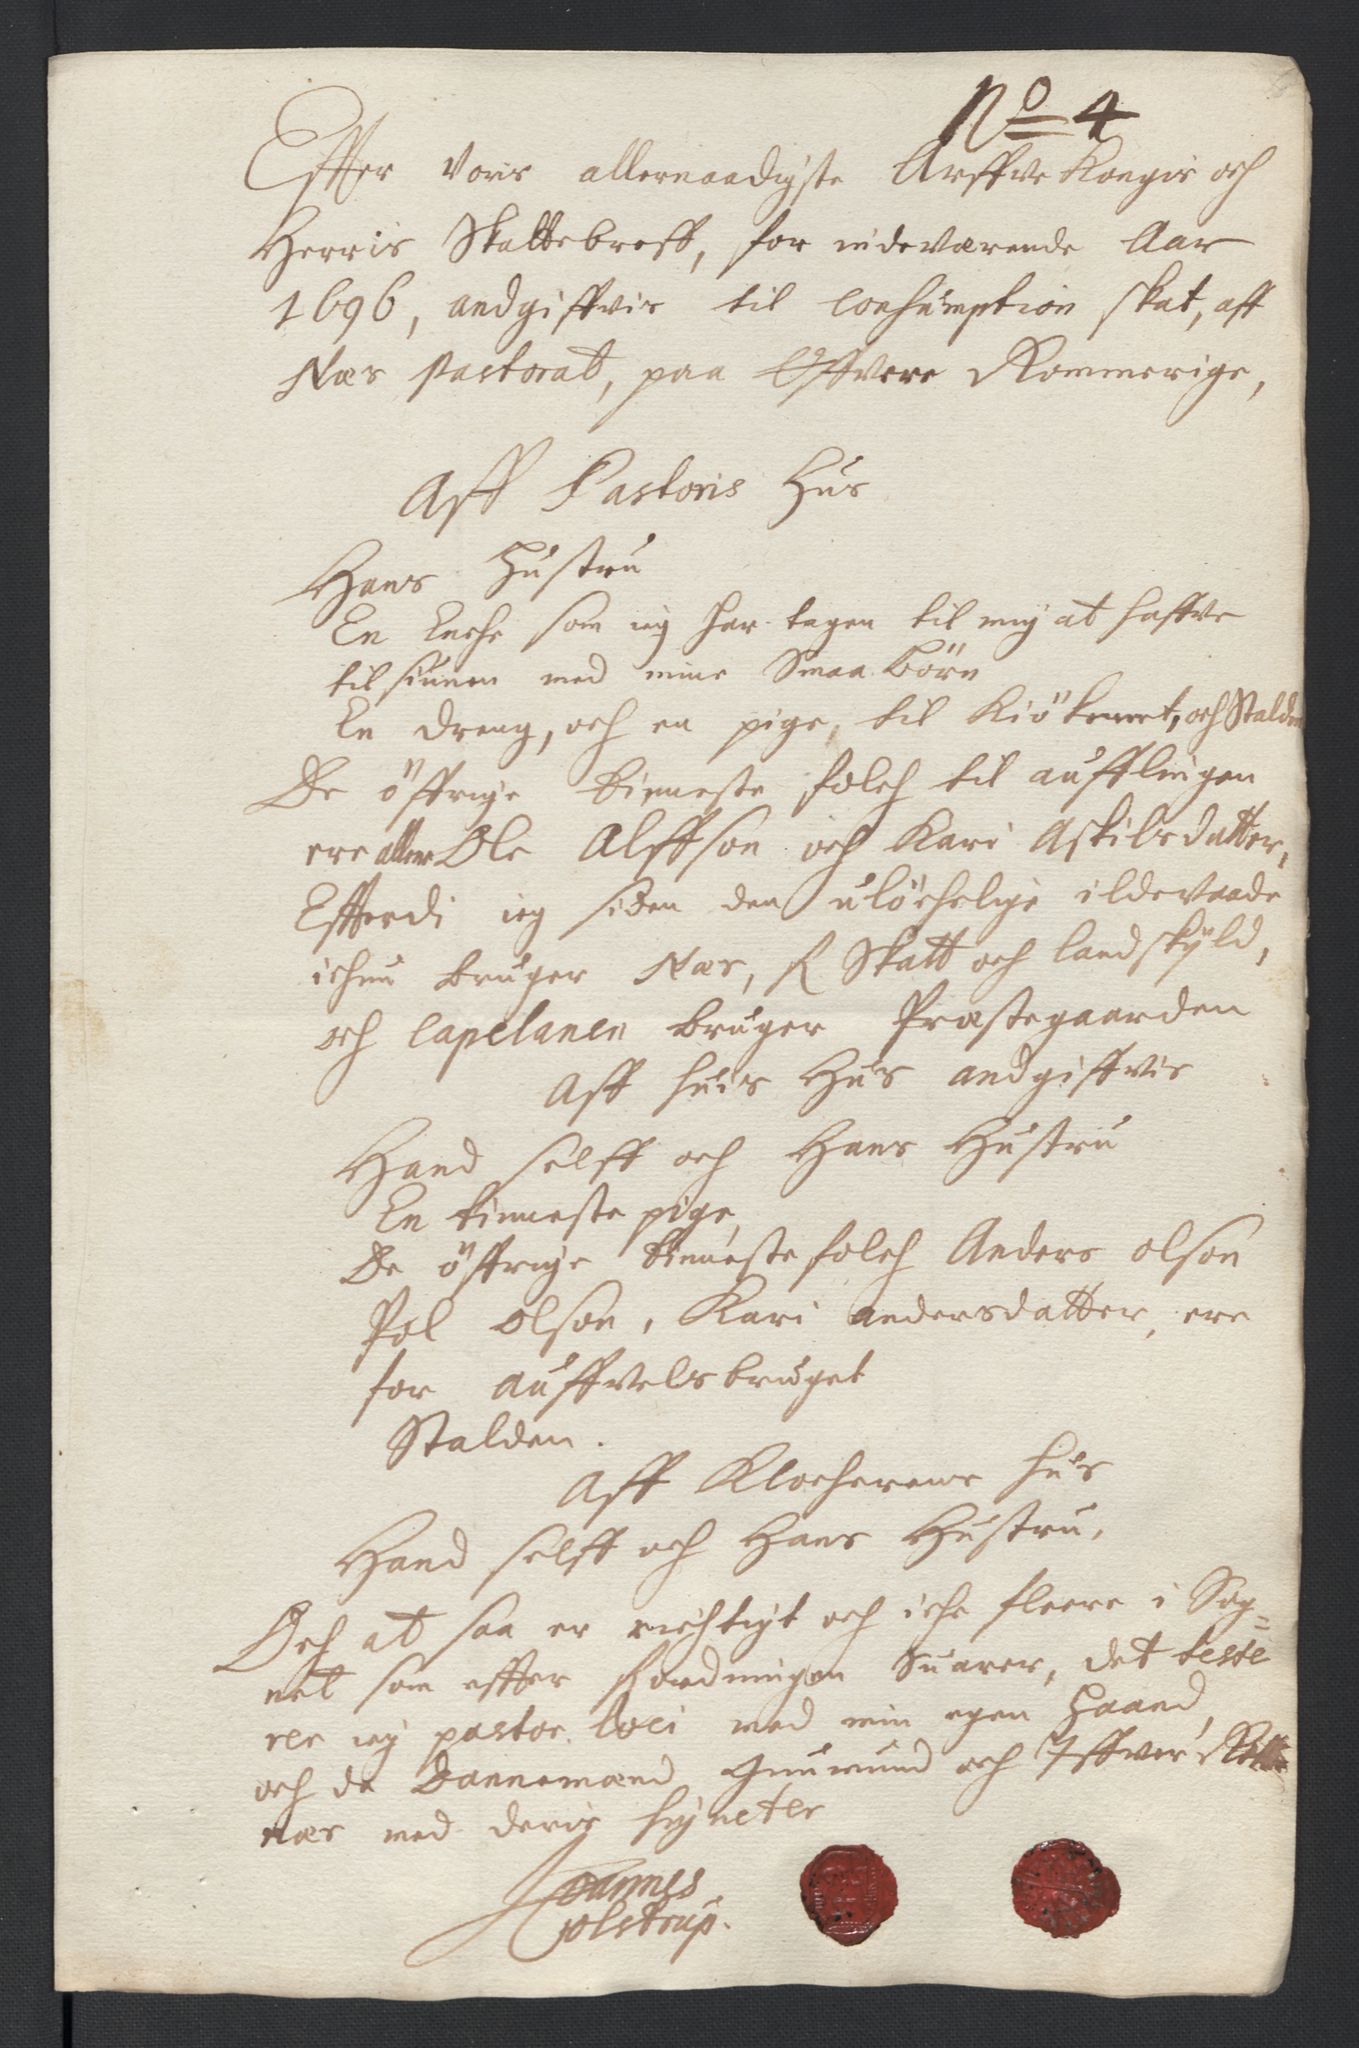 No 4
Effter Voris allernaadigste Arffve Kongis och
Herris Skattebreff, for indeværende Aar
1696, andgiffvis til Consumption skat, aff
Nær Pastorat, paa Offvere Rommerige,
Aff Pastoris Hus
Hans Hustru
En Enche som ieg har tagen til mig at haffve
tilsiunen med mine Smaa börn
En dreng, och en pige, til Kiökenet, och Stalden
De öffrige tienneste folch til aufflingen
ere allene Ole Alffson och Kari Askilsdatter,
Efterdi ieg siden den ulöchelige ildevaade
ichun bruger Nær, Skatt och landskyld,
och Capelanen bruger Præstegaarden
Aff huis Hus andgiffvis
Hand selff och Hans Hustru
En tienneste pige,
De öffrige tienneste folch Anders olson
Pol olson, Kari andersdatter, ere
for auffvelsbruget
Stalden.
Aff Klocherens hus
Hand selff och Hans Hustru,
Och at saa er richtigt och iche fleere i Sog=
net som effter forordningen Suarer, det teste
rer ieg pastor loci med min egen haand,
och de Dannemænd Gunmund och Iffver
nær med deris signeter
Joannes
Colstrup.